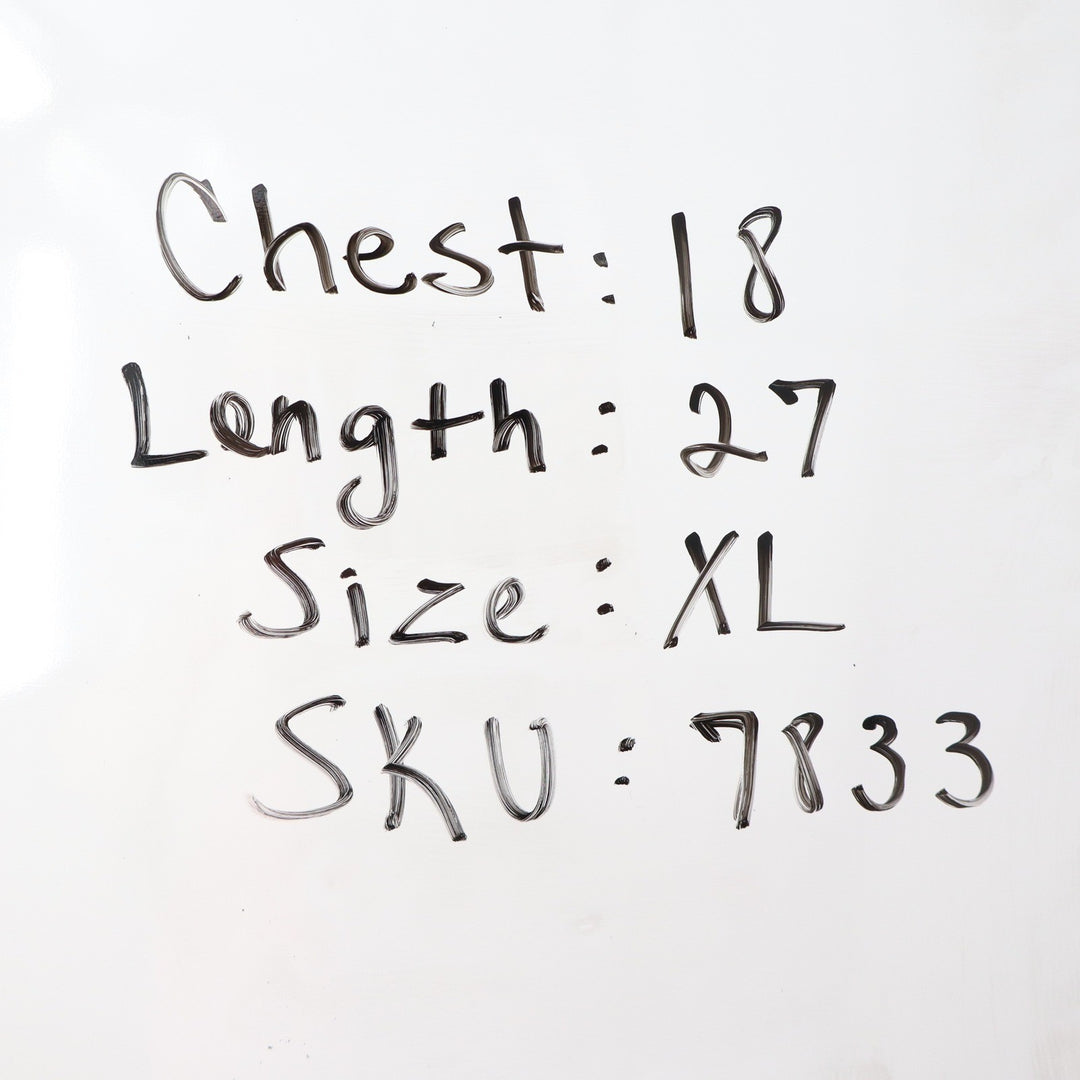 Chest: 18
Length: 27
Size: XL
SKU: 7833